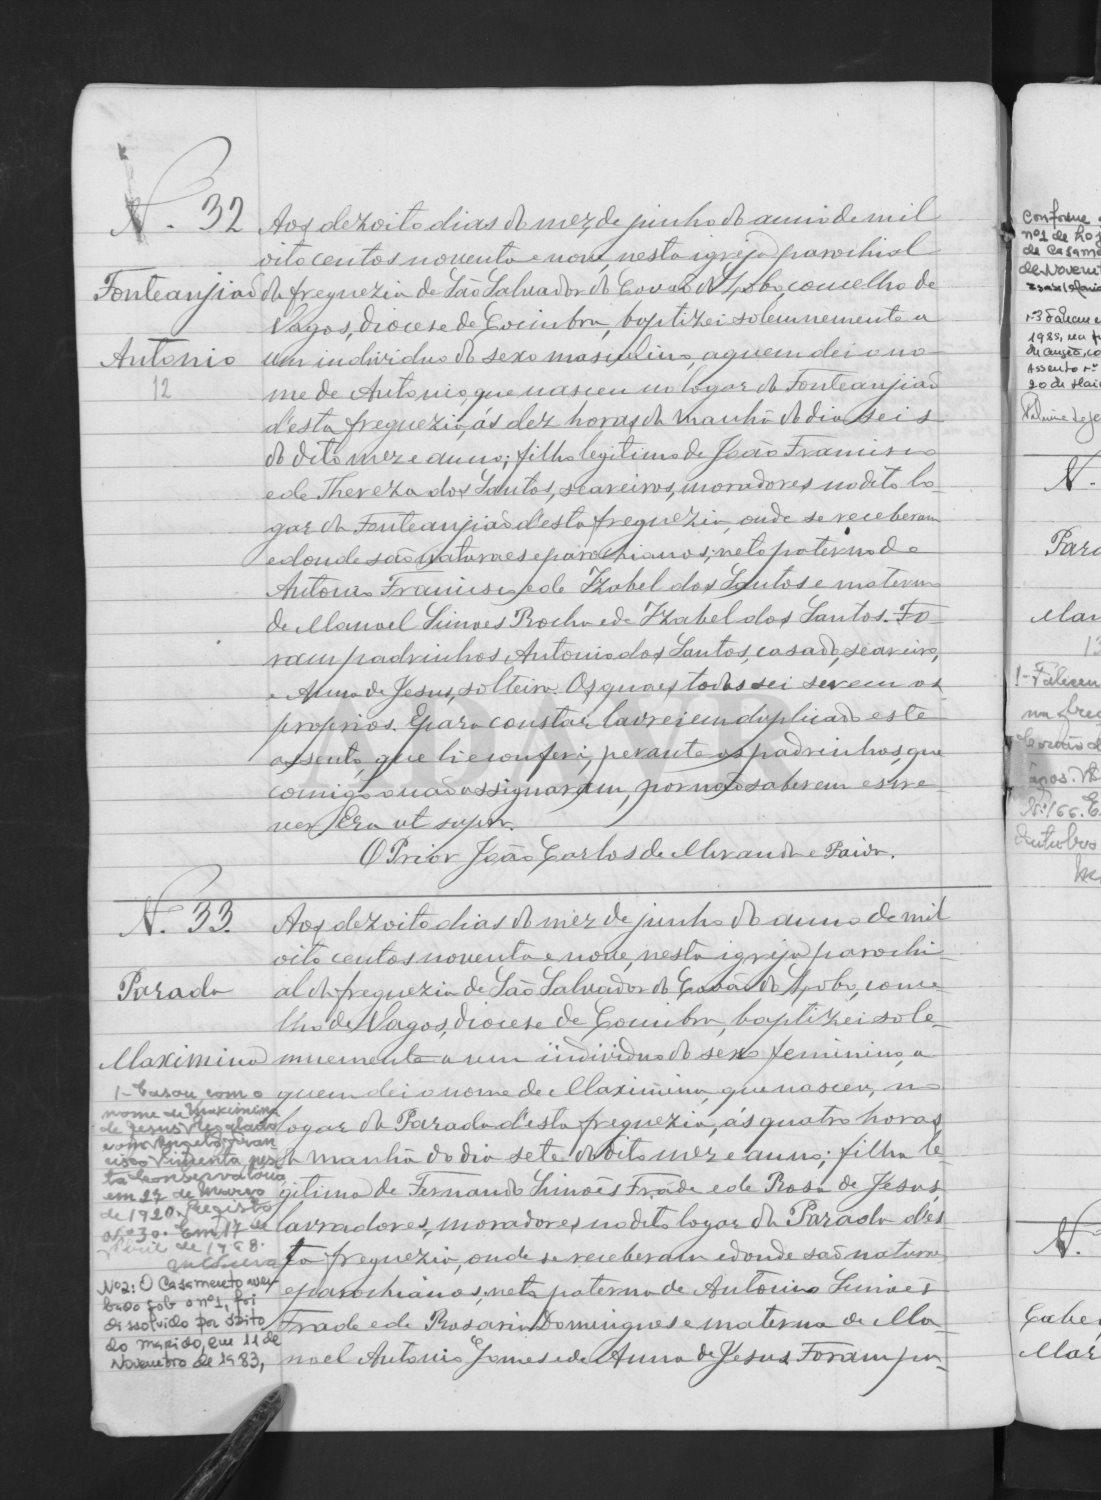 N. 32
Fonteanjião
Antonio
12
Aos dezoito dias do mez de junho do anno de mil
oito centos noventa e nove, nesta igreja parochial
da freguezia de São Salvador do Covão do Lobo, concelho de
Vagos, diocese de Coimbra, baptizei solemnemente a
um individuo do sexo masculino, a quem dei o no-
me de Antonio, que nasceu no logar da Fonteanjião
d'esta freguezia, ás dez horas da manhã do dia seis
do dito mez e anno; filho legitimo de João Francisco
e de Thereza dos Santos, seareiros, moradores no dito lo-
gar da Fonteanjião d'esta freguezia, onde se receberam
e donde são naturaes e parochianos; neto paterno de
Antonio Francisco e de Izabel dos Santos e materno
de Manoel Simões Rocha e de Izabel dos Santos. Fo-
ram padrinhos Antonio dos Santos, casado, seareiro,
e Anna de Jesus, solteira. Os quaes todos sei serem os
proprios. E para constar lavrei em duplicado este
assento, que li e conferi, perante os padrinhos, que
comigo não assignaram, por não saberem escre-
ver. Era ut supra.
O Prior João Carlos de Miranda e Paiva.
N. 33.
Parada
Maximina
1- Casou com o
nome de Maximina
de Jesus
com Angelo Fran
cisco Pimenta nes
ta Conservatória
em 27 de Março
de 1920. Registo
nº 30. Em 17 de
Abril de 1968.
Nº2: O Casamento aver
bado sob o nº1, foi
dissolvido por óbito
do marido, em 11 de
Novembro de 1983,
Aos dezoito dias do mez de junho do anno de mil
oito centos noventa e nove, nesta igreja parochi-
al da freguezia de São Salvador do Covão do Lobo, conce-
lho de Vagos, diocese de Coimbra, baptizei sole-
mnemente a um individuo do sexo feminino, a
quem dei o nome de Maximina, que nasceu, no
logar da Parada d'esta freguezia, ás quatro horas
da manhã do dia sete do dito mez e anno; filha le-
gitima de Fernando Simões Frade e de Rosa de Jesus,
lavradores, moradores no dito logar da Parada d'es
ta freguezia, onde se receberam e donde são naturaes
e parochianos, neta paterna de Antonio Simões
Frade e de Rosaria Domingues e materna de Ma-
noel Antonio Gomes e de Anna de Jesus. Foram pa-
ADAVR
Conforme
nº1 de hoj
de Casame
de Novem
1985, na f
Assento nº
20 de Mai
N.
Para
Mar
13
1- Faleceu
na freg
anos.
Nº 166. E
Outubro
N.
Cabe
Mar